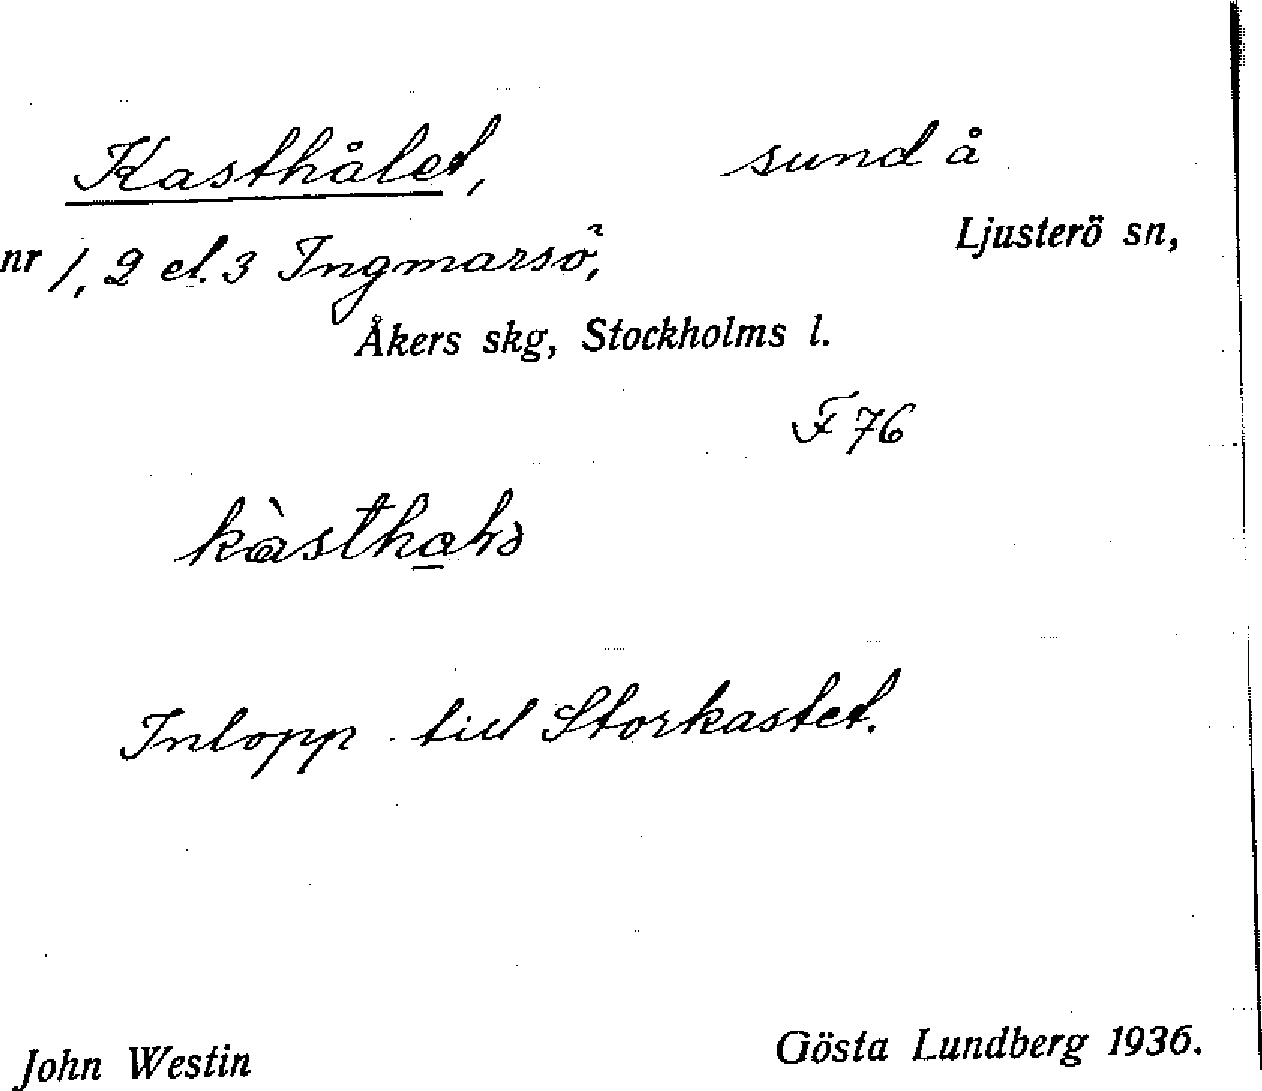 Kasthålet, sund å
Ljusterö sn,
nr 1, 2 el. 3 Ingmarsö,
Åkers skg, Stockholms l.
F 76
Inlopp till Storkastet.
John Westin Gösta Lundberg 1936.